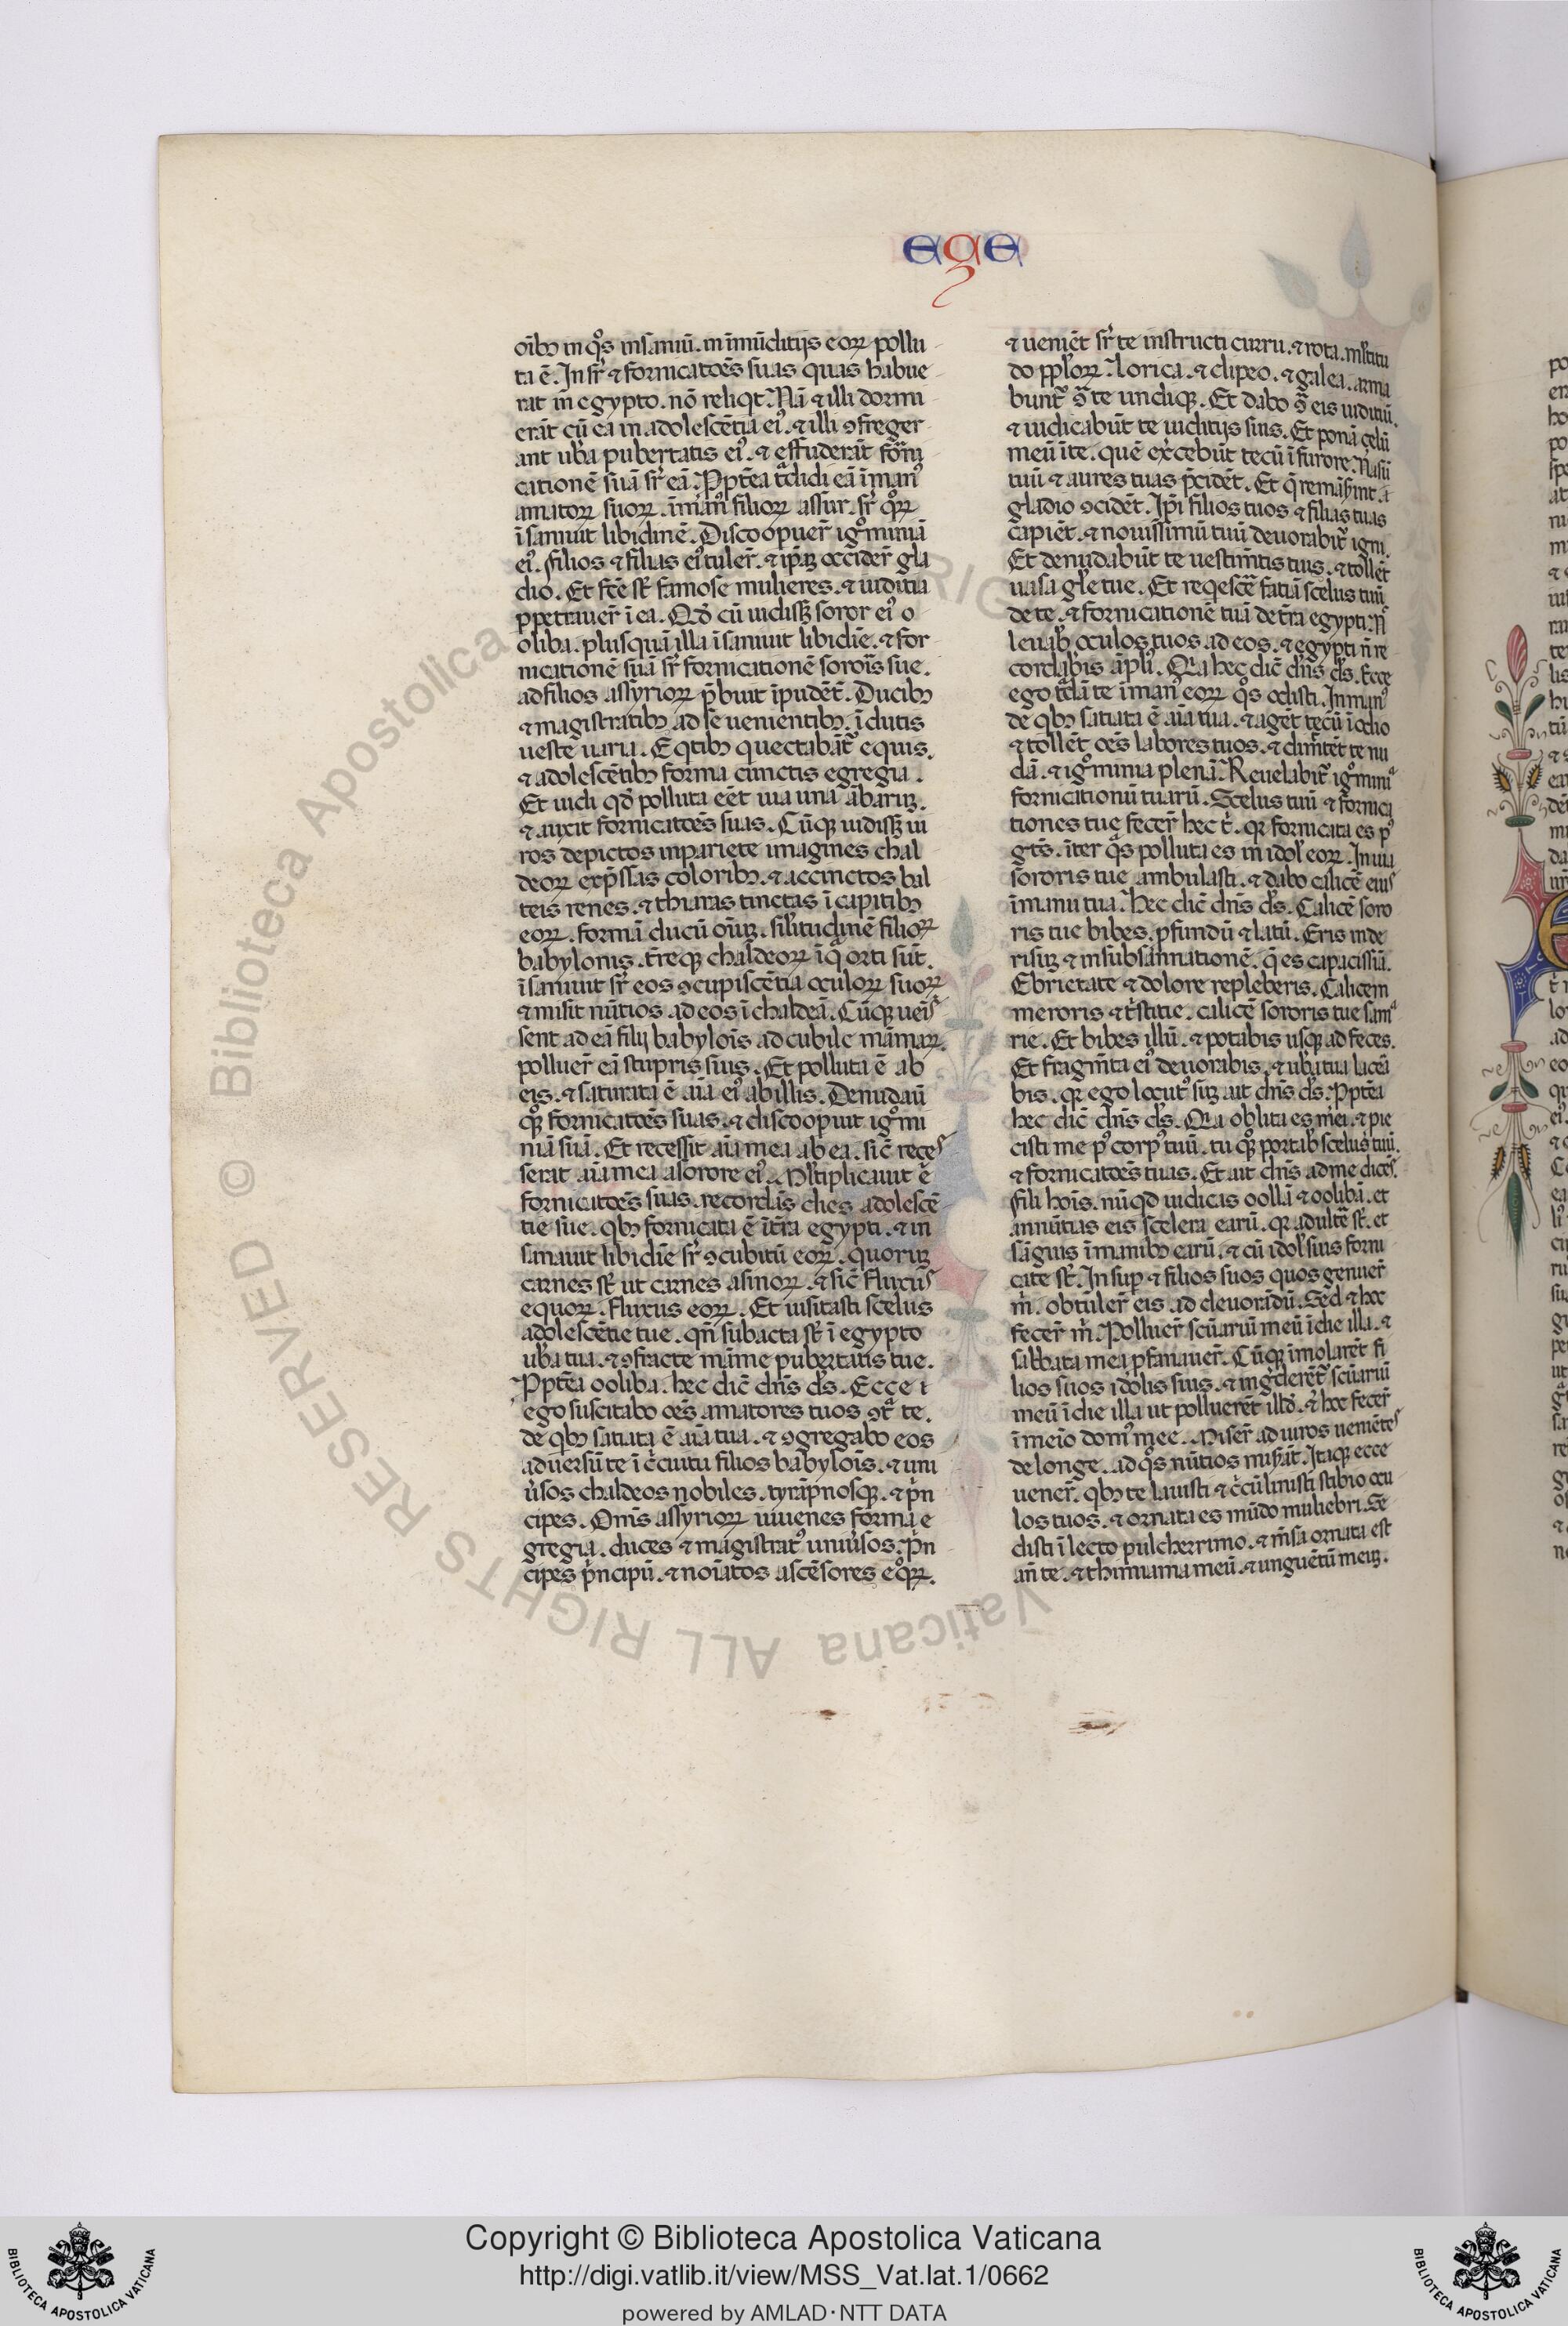 eçe
oību in qͦs insaniu̅. in īmūditijs eoꝝ pollu
ta ē. Insr̄ & fornicatōēs suas quas habue
rat in egypto. nō reliqt. Nā & illi dormi
erāt cū ea in adolescētia eiꝰ. & illi ꝯfreger
ant ub̄a pubertatis eiꝰ. & effuderāt forni
cationē suā sr̄ eā. Ppt̄ea t̄didi eā ī manꝰ
amatoꝝ suoꝝ. ī manꝰ filioꝝ assur. sr̄ qͦꝝ
īsaniuit libidinē. Discoopuer̄ igͦminiā
eiꝰ. filios & filias eiꝰ tuler̄. & ip̄aꝫ occider̄ gla
dio. Et fc̄e st̄ famose mulieres. & iuditia
ꝑpetrauer̄ ī ea. Qđ cū uidissꝫ soror eiꝰ o
oliba. plusquā illa īsaniuit libidīe. & for
nicationē suā sr̄ fornicationē sorois̄ sue.
ad filios assyrioꝝ p̄buit īpudēt̄. Ducibꝫ
& magistratibꝫ ad se uenientibꝫ. īdutis
ueste uaria. Eqtibꝫ que ctabāt̄ equis.
& adolescētibꝫ forma cunctis egregia.
Et uidi qđ polluta eēt uia una ābaruꝫ.
& auxit fornicatōēs suas. Cūqꝫ uidissꝫ ui
ros depictos inpariete imagines chal
deoꝝ exp̄ssas coloribꝫ. & accinctos bal
teis renes. & thiaras tinctas ī capitibꝫ
eoꝝ. formā ducū oīuꝫ. sil̄itudinē filioꝝ
babylonis. tr̄eqꝫ chaldeoꝝ ī q̄ orti sūt.
īsaniuit sr̄ eos ꝯcupiscētia oculoꝝ suoꝝ
& misit nūtios ad eos ī chaldeā. Cūqꝫ ueis̄
sent ad eā filij babylois̄ ad cubile māmaꝝ.
polluer̄ eā stupris suis. Et polluta ē ab
eis. & saturata ē aīa eiꝰ ab illis. Denudauit
qͦꝫ fornicatōēs suas. & discoopuit igͦmi
niā suā. Et recessit aīa mea ab ea. sic̄ reces
serat aīa mea a sorore eiꝰ. Ml̄tiplicauit ē
fornicatōēs suas. recordās dies adolescē
tie sue. qbꝫ fornicata ē ī tr̄a egypti. & in
sanauit libidīe sr̄ ꝯcubitū eoꝝ. quoruꝫ
carnes st̄ ut carnes asinoꝝ. & sic̄ fluxus
equoꝝ. fluxus eoꝝ. Et uisitasti scelus
adolescētie tue. qn̄ subacta st̄ ī egypto
ub̄a tua. & ꝯfracte māme pubertatis tue.
Ppt̄ea ooliba. hec dic̄ dn̄s đs. Ecce
ego suscitabo oēs amatores tuos ꝯt̄ te.
de qbꝫ satiata ē aīa tua. & ꝯgregabo eos
aduersū te ī c̄cuitu filios babylois̄. & uni
ūsos chaldeos nobiles. tyrāpnosqꝫ. & p̄n
cipes. Om̄s assyrioꝝ iuuenes forma e
gregia. duces & magistratꝰ uniūsos. p̄n
cipes p̄ncipū. & noīatos ascēsores eqͦꝝ.
& ueniēt sr̄ te instructi curru. & rota. ml̄titu
do ppl̄oꝝ. lorica. & clipeo. & galea. arma
bunt̄ ꝯ̄ te undiqꝫ. Et dabo ꝯ̄ eis iuditiū.
& iudicabūt te iuditijs suis. Et ponā çelū
meū ī te. quē ex̄cebūt tecū ī furore. Nasū
tuū & aures tuas p̄cidēt. Et q̄ remāser̄int. a
gladio ꝯcidēt. Ip̄i filios tuos & filias tuas
capiēt. & nouissimū tuū deuorabit̄ igni.
Et denudabūt te uestim̄tis tuis. & tollēt
uasa gl̄e tue. Et reqescē faciā scelus tuū
de te. & fornicationē tuā de tr̄a egypti. n̄
leuab̄ oculos tuos ad eos. & egypti n̄ re
cordab̄is āpli. Qia hec dic̄ dn̄s đs. Ecce
ego t̄dā te ī manꝰ eoꝝ qͦs odisti. In manꝰ
de qbꝫ satiata ē aīa tua. & agēt tecū ī odio
& tollēt oēs labores tuos. & dimitēt te nu
dā. & igͦminia plenā. Reuelabit̄ igͦminia
fornicationū tuarū. Scelus tuū & fornica
tiones tue fecer̄ hec t̄. qꝛ fornicata es pꝰ
gēs. īter q̄s polluta es in idol̄ eoꝝ. In uia
sororis tue ambulasti. & dabo calicē eius
īmanu tua. hec dic̄ dn̄s đs. Calicē soro
ris tue bibes. ꝓfundū & latū. Eris in de
risuꝫ & in subsannationē. q̄ es capacissia̅.
Ebrietate & dolore repleberis. Calicem
meroris & tr̄stitie. calicē sororis tue sama
rie. Et bibes illū. & potabis usqꝫ ad feces.
Et fragm̄ta eiꝰ deuorabis. & ub̄a tua lacera
bis. qꝛ ego locutꝰ suꝫ ait dn̄s đs. Ppt̄ea
hec dic̄ dn̄s đs. Qia oblita es mei. & pie
cisti me pꝰ corpꝰ tuū. tu qͦꝫ portab̄ scelus tuū.
& fornicatōēs tuas. Et ait dn̄s ad me dicēs.
fili hois̄. nūqd iudicas oollā & oolibā. et
annūtias eis scelera earū. qꝛ adultē st̄. et
sāguis ī manibꝫ earū. & cū idol̄ suis forni
cate st̄. Insuꝑ & filios suos quos genuer̄
m̄. obtuler̄ eis ad deuorādū. Sed & hoc
fecer̄ m̄. Polluer̄ scūariū meū ī die illa. &
sabbata mea ꝓfanauer̄. Cūqꝫ īmolarēt fi
lios suos idolis suis. & ingderēt̄ scūariū
meū ī die illa ut polluerēt illđ. & hoc fecer̄
ī meio domꝰ mee. Miser̄ ad uiros ueniētes
de longe. ad qͦs nūtios misāt. Itaqꝫ ecce
uener̄. qbꝫ te lauisti & c̄cūlinisti stibio ocu
los tuos. & ornata es mūdo muliebri. Se
disti ī lecto pulcherrimo. & m̄sa ornata est
an̄ te. & thimiama meū. & unguētū meuꝫ.
© Biblioteca Apostolica Vaticana ALL RIGHTS RESERVED
Copyright © Biblioteca Apostolica Vaticana
http://digi.vatlib.it/view/MSS_Vat.lat.1/0662
powered by AMLAD·NTT DATA
BIBLIOTECA APOSTOLICA VATICANA
BIBLIOTECA APOSTOLICA VATICANA